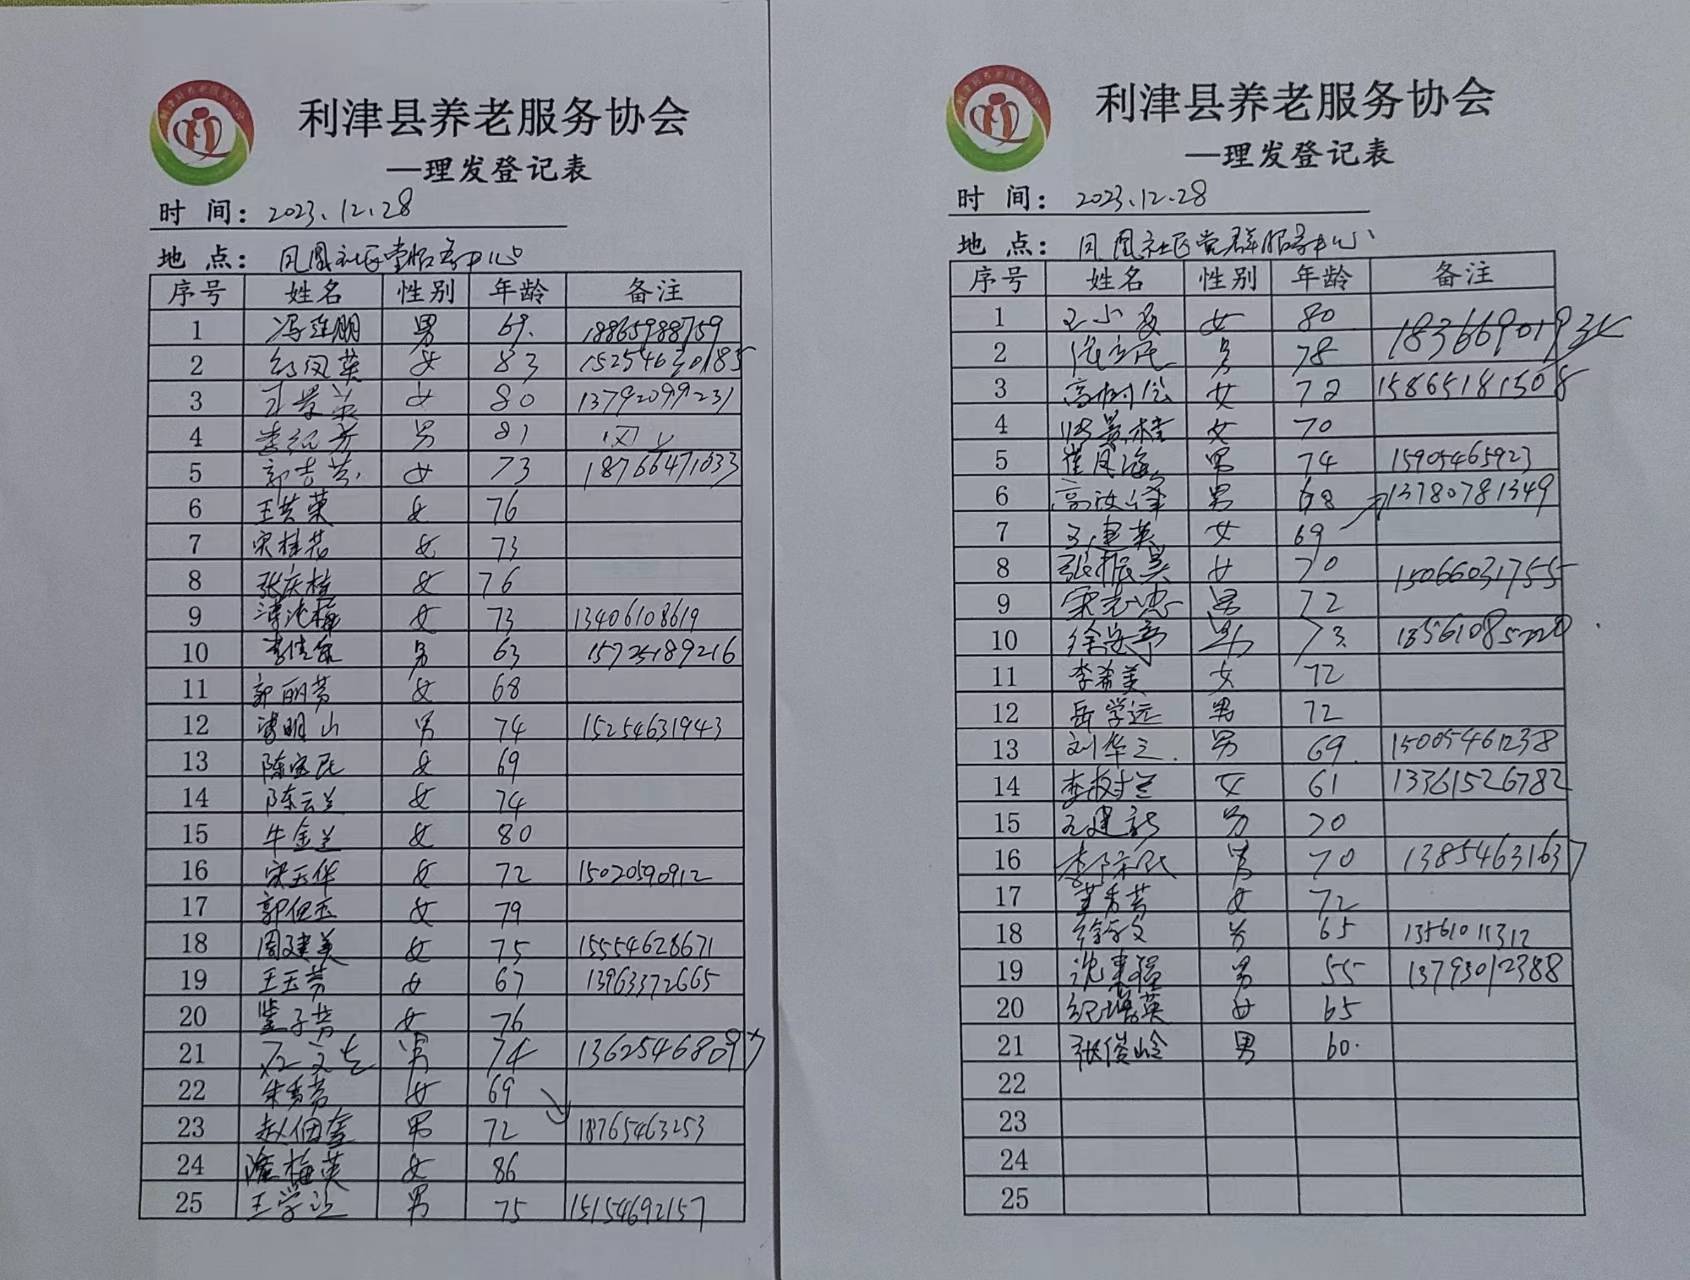 利津县养老服务协会
—理发登记表
时 间: 2023.12.28
地 点: 凤凰社区党服务中心
序号 姓名 性别 年龄 备注
1 冯连朋 男 69. 18865988759
2 凤英 女 83 15254630185
3 王 女 80 13792099231
4 李纪芳 男 81
5 郭吉芬 女 73 18766471033
6 王芸荣 女 76
7 宋桂花 女 73
8 张庆桂 女 76
9 女 73 13406108619
10 李 男 63 15725189216
11 郭丽芳 女 68
12 明山 男 74 15254631943
13 陈宝民 女 69
14 陈云兰 女 74
15 牛金兰 女 80
16 宋玉华 女 72 15020590912
17 郭但玉 女 79
18 周建美 女 75 15554628671
19 王玉芳 女 67 13963372665
20 子芳 女 76
21 石文 男 74 13625468097
22 朱秀芳 女 69
23 赵佃奎 男 72 18765463253
24 梅英 女 86
25 王学 男 75 15154692157
利津县养老服务协会
—理发登记表
时 间: 2023.12.28
地 点: 凤凰社区党群服务中心
序号 姓名 性别 年龄 备注
1 王小 女 80
2 男 78
3 高树 女 72 15865181508
4 景桂 女 70
5 崔凤海 男 74 15905465923
6 高 男 68 13780781349
7 王建英 女 69
8 张振 女 70 15066031755
9 宋志忠 男 72
10 徐 男 73.
11 李希美 女 72
12 岳学远 男 72
13 刘华三. 男 69. 15005461238
14 李树兰 女 61 13361526782
15 王建新 男 70
16 李 男 70 13854631637
17 董秀芳 女 72
18 徐文 男 65 13561011312
19 沈 男 55 13793012388
20 纪增英 女 65
21 张俊岭 男 60.
22
23
24
25